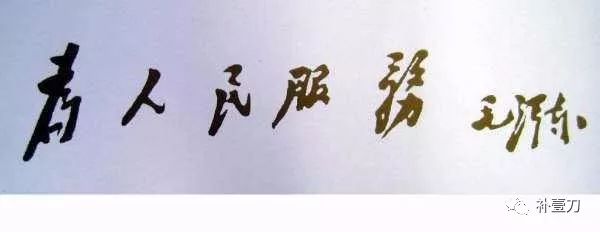 為人民服務 毛泽东
补壹刀